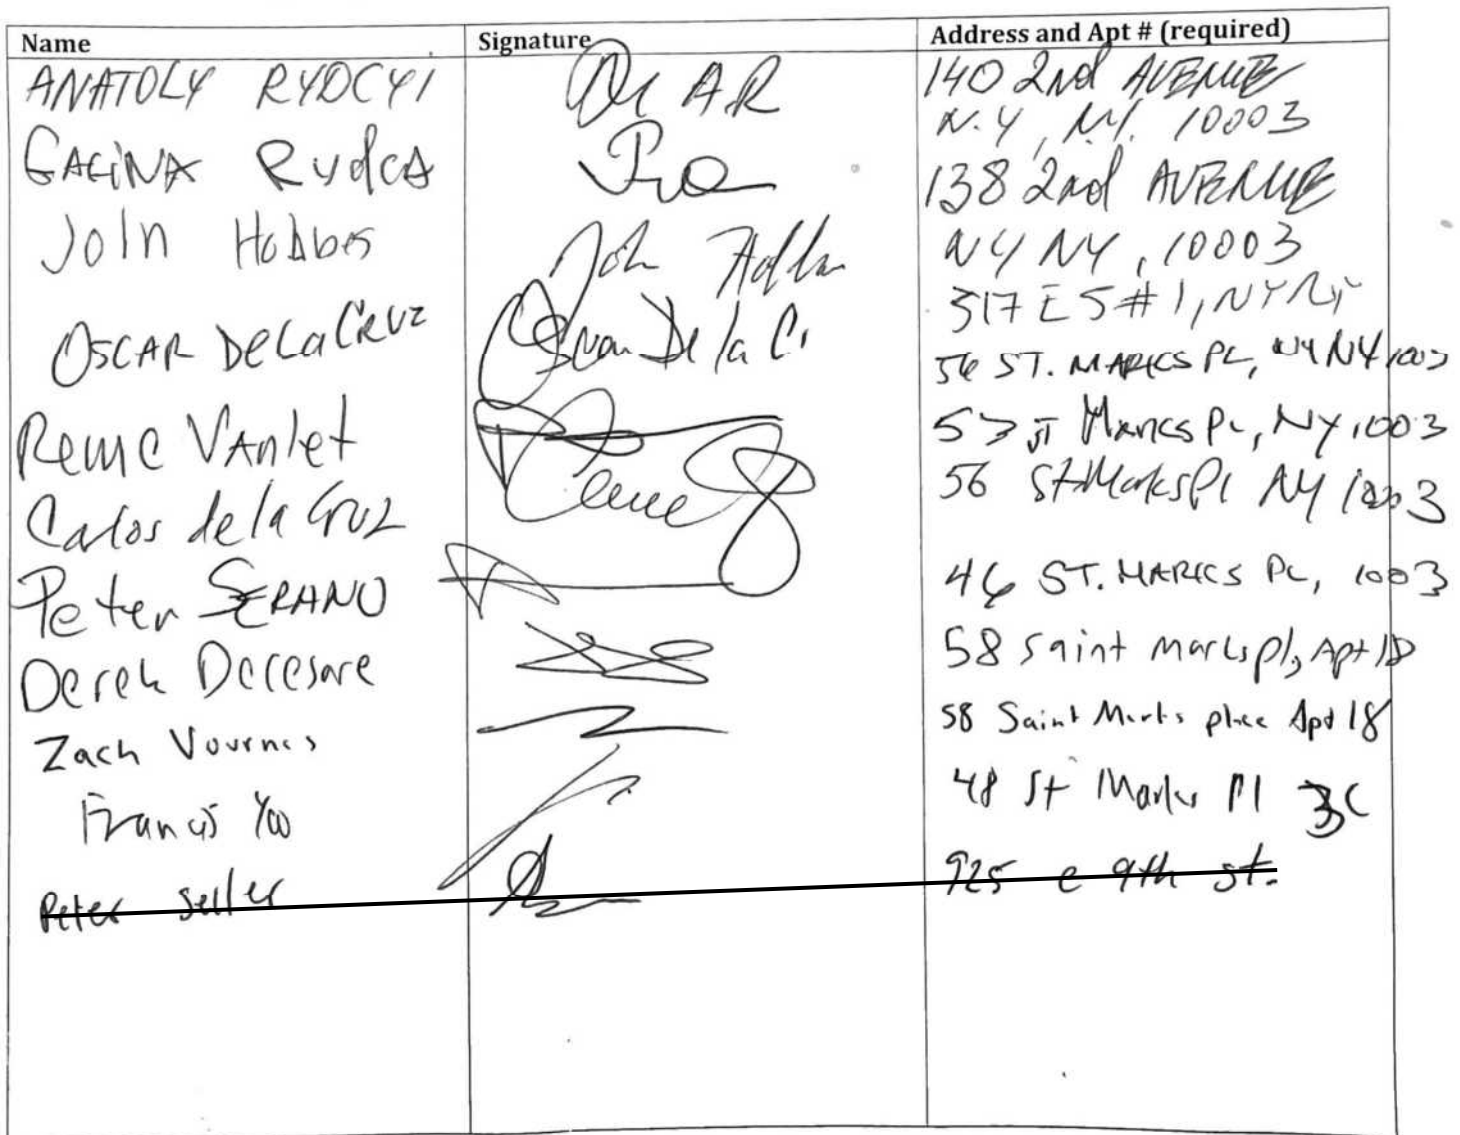 Name Signature Address and Apt # (required)
ANATOLY RYDCYI AR 140 2nd AVENUE
N.Y, N.Y. 10003
GALINA Rydca 138 2nd AVENUE
John Hobbes John NY NY, 10003
317 E 5 #1, NY NY
OSCAR DeLaCRUZ De la C. 56 ST. MARKS PL, NY NY 1003
VAnlet 57 ST Marks PL, NY, 1003
Carlos de la Cruz 56 St Marks Pl NY 10003
Peter SERANO 46 ST. MARKS PL, 1003
Derek Decesare 58 saint marks pl, Apt 18
Zach 58 Saint Marks place Apt 18
Francis Yoo 48 St Marks Pl 3C
Peter seller 925 e 9th st.